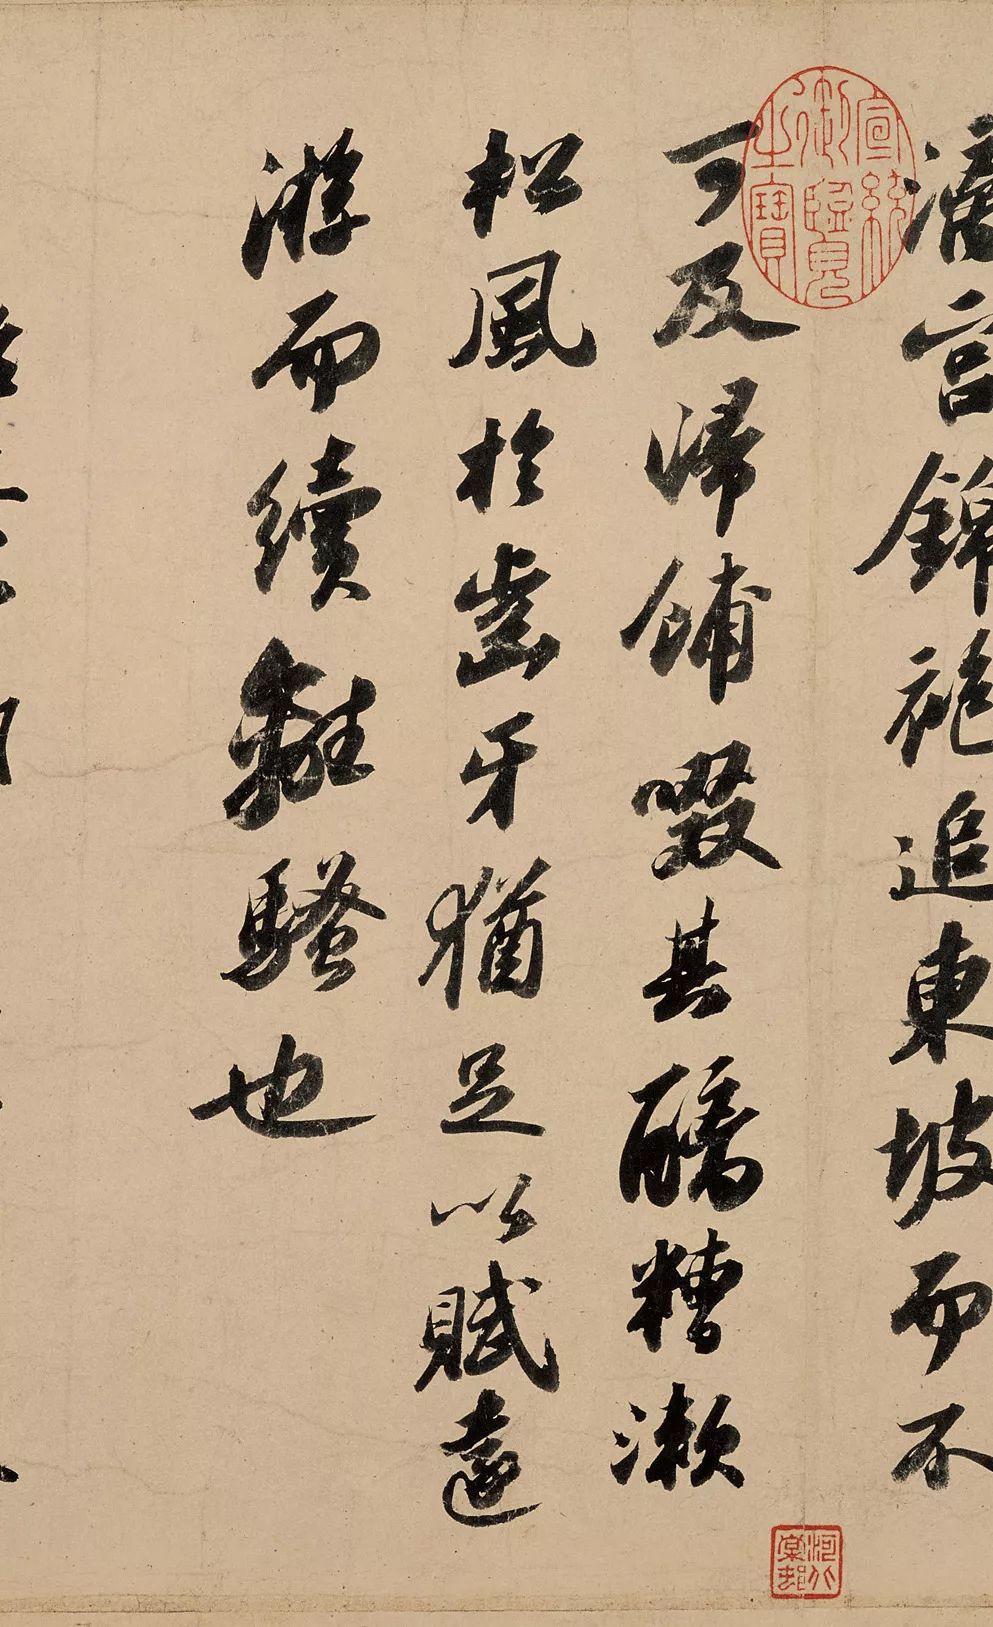 漓宮錦袍追東坡而不
可及歸餔啜其醨糟漱
松風於齒牙猶足以賦遠
游而續離騷也
宣統御覽之寶
河北棠邨